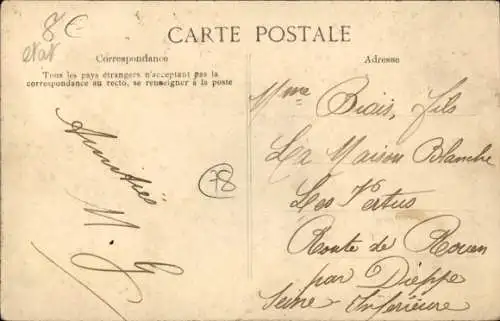 8€
état
CARTE POSTALE
Correspondance
Tous les pays étrangers n'acceptant pas la
correspondance au recto, se renseigner à la poste
Adresse
Amitiés
M. G
78
Mme Biais, fils
La Maison Blanche
Les Vertus
Route de Rouen
par Dieppe
Seine Inférieure